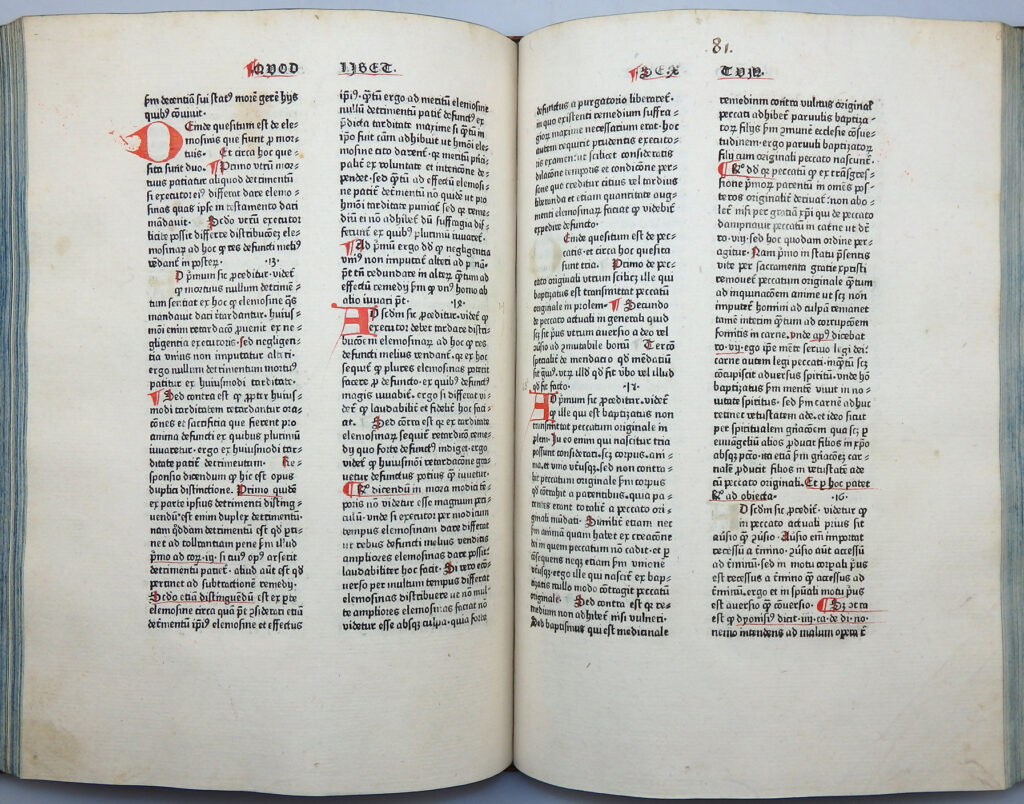 ¶QVOD LIBET.
ẜm decentiā sui statꝰ morē gerēs hijs
quibꝰ cōuiuit.
DEinde quesitum est de ele⸗
mosinis que fiunt ꝓ mor⸗
tuis. Et circa hoc que⸗
sita sunt duo. ¶Primo vtrū mor⸗
tuus patiatur aliquod detrimentū
si executores eiꝰ differāt dare elemo⸗
sinas quas ipse in testamento dari
mādauit. Scdo vtrū executor
licite possit differre distribucōēȝ ele⸗
mosinarȝ ad hoc ꝙ res defuncti meliꝰ
vēdant̄ in posterȝ. ·13·
D primum sic ꝓceditur. videt̄
ꝙ mortuus nullum detrimen⸗
tum sentiat ex hoc ꝙ elemosine q̄s
mandauit dari tardantur. huius⸗
mōi enim retardacō ꝓuenit ex ne⸗
gligentia executoris. sed negligen⸗
tia vnius non imputatur alteri.
ergo nullum detrimentum mortuꝰ
patitur ex huiusmodi tarditate.
¶Sed contra est ꝙ propter huius⸗
modi tarditatem retardantur ora⸗
cōnes et sacrificia que fierent pro
anima defuncti ex quibus plurimū
iuuaretur. ergo ex huiusmodi tar⸗
ditate patit̄ detrimentum. Re⸗
sponsio dicendum ꝙ hic est opus
duplici distinctione. Primo quidē
ex parte ipsius detrimenti disting⸗
uendū est enim duplex detrimentū.
nam q̄ddam detrimentū est qd̄ ꝑti⸗
net ad tollerantiam pene ẜm illud
pmo ad cor. iij. si cuiꝰ opꝰ arserit
detrimentū patiet̄. aliud aūt est qd̄
pertinet ad subtractionē remedij.
Scdo etiā distinguendū est ex pte
elemosine circa quā pt̄ ꝯsiderari etiā
detrimentū ipsiꝰ elemosine et effectus
ipiꝰ. qꝫtū ergo ad meritū elemosine
nullū detrimentū patit̄ defunctꝰ ex
pdicta tarditate maxime si qꝫtū in
ipso fuit cām adhibuit ut hmōi ele⸗
mosine cito darent̄. ꝙ meritū prīci⸗
palit̄ ex voluntate et intencōne de⸗
pendet. sed qꝫtū ad effectū elemosi⸗
ne patit̄ detrimētū nō quidē ut pro
hmōi tarditate puniat̄ sed ꝙ reme⸗
diū ei nō adhibet̄ dū suffragia dif⸗
ferunt̄ ex quibꝰ plurimū iuuaret̄.
¶Ad pmū ergo dd̄ ꝙ negligentia
vniꝰ non imputat̄ alteri ad pēnā.
pt̄ tn̄ redundare in alterȝ qꝫtum ad
effectū remedij ẜm ꝙ vnꝰ homo ab
alio iuuari pt̄. ·12·
AD scdm sic ꝓceditur. videt̄ ꝙ
executor debet tardare distri⸗
bucōem elemosinarȝ ad hoc ꝙ res
defuncti melius vendant̄. ꝙ ex hoc
sequit̄ ꝙ plures elemosinas poterit
facere ꝓ defuncto. ex quibꝰ defunctꝰ
magis iuuabit̄. ergo si differat vi⸗
det̄ ꝙ laudabilit̄ et fidelit̄ hoc faci⸗
at. Sed cōtra est ꝙ ex tarditate
elemosinarȝ sequit̄ retardacō reme⸗
dij quo forte defunctꝰ indiget. ergo
videt̄ ꝙ huiusmōi retardacōne gra⸗
uetur defunctus potius ꝙ iuuetur.
¶Ro dicendū ꝙ in mora modici tē⸗
poris nō videtur esse magnum peri⸗
culū. unde si executor per modicum
tempus elemosinam dare differat
ut rebus defuncti melius venditis
ampliores elemosinas dare possit
laudabiliter hoc facit. Si vero ecō⸗
uerso per multum tempus differat
elemosinas distribuere ut nō mul⸗
to ampliores elemosinas faciat nō
videtur esse absqꝫ culpa. quia forte
81.
¶SEX TVM.
defunctus a purgatorio liberaret̄.
in quo existenti remedium suffra⸗
giorȝ maxime necessarium erat. hoc
autem requirit prudentis executo⸗
ris examen ut scilicet consideratis
dilacōne temporis et condicōne per⸗
sone que creditur citius vel tardius
liberanda et etiam quantitate aug⸗
menti elemosinarȝ faciat ꝙ videbit̄
expedire defuncto.
DEinde quesitum est de pec⸗
catis. et circa hoc quesita
sunt tria. Primo de pec⸗
cato originali vtrum scilicȝ ille qui
baptizatus est transmittat peccatū
originale in prolem. ¶Secundo
de peccato actuali in generali quid
scȝ sit pꝰ vtrum auersio a deo vel
ꝯuersio ad ꝯmutabile bonū. Tercō
specialit̄ de mendatio qd̄ mēdatiū
sit ꝗuiꝰ. vtrȝ illd̄ qd̄ fit ꝟbo vel illud
qd̄ fit facto. ·17·
AD pmum sic ꝓceditur. videt̄
ꝙ ille qui est baptizatus non
transmittat peccatum originale in
prolem. In eo enim qui nascitur tria
possunt considerari. scȝ corpus. ani⸗
ma. et vnio vtriusqꝫ. sed non contra⸗
hit peccatum originale ẜm corpus
qd̄ cōtrahit a parentibus. quia pa⸗
rentes erant totalit̄ a peccato ori⸗
ginali mūdati. Similit̄ etiam nec
ẜm animam quam habet ex creacōne
dei in quem peccatum nō cadit. et p̄
cōsequens neqꝫ etiam ẜm vnionē
vtriusqꝫ. ergo ille qui nascit̄ ex bap⸗
tizatis nullo modo cōtrahit peccatū
originale. Sed contra est ꝙ re⸗
medium non adhibet̄ nisi vulneri.
Sed baptismus qui est medicinale
remedium contra vulnus originał
peccati adhibet̄ paruulis baptiza⸗
torȝ filijs ẜm ꝯmunē ecclesie cōsue⸗
tudinem. ergo paruuli baptizatorȝ
filij cum originali peccato nascunt̄.
¶Ro dd̄ ꝙ peccatū ꝙ ex trāsgres⸗
sione pmorȝ parentū in omēs pos⸗
teros originalit̄ deriuat̄ non abo⸗
let̄ nisi per gratiā xp̄i qui de peccato
dampnauit peccatū in carne ut dr̄
ro. viij. sed hoc quodam ordine per⸗
agitur. Nam pmo in statu psentis
vite per sacramenta gratie existētis
remouet̄ peccatum originale qꝫtum
ad inquinacōem anime ut scȝ non
imputet̄ homini ad culpam remanet
tamē interim qꝫtum ad corrupcōem
fomitis in carne. vnde apꝰ dicebat
ro. vij. ego ipse mēte seruio legi dei.
carne autem legi peccati. inqꝫtū scȝ
cōcupiscit aduersus spiritū. vnde hō
baptizatus ẜm mentē viuit in no⸗
uitate spiritus. sed ẜm carnē adhuc
retinet vetustatem ade. et ideo sicut
per spiritualem gn̄acōem qua scȝ ꝑ
euuāgeliū alios ꝓducit filios in xp̄o
absqꝫ pctō. ita etiā ꝑ gn̄acōeȝ car⸗
nalē ꝓducit filios in vetustatē ade
cū peccato originali. Et p hoc patet
Ro ad obiecta. ·16·
D scdm sic ꝓcedit̄. videtur ꝙ
in peccato actuali prius sit
auersio ꝙ ꝯuersio. Auersio em̄ importat
recessū a t̄mino. ꝯuersio aūt accessū
ad t̄minū. sed in motu corpali prius
est recessus a t̄mino ꝙ accessus ad
t̄minū. ergo et in spūali motu prius
est auersio ꝙ conuersio. ¶Sȝ ꝯtra
est ꝙ dyonisiꝰ dicit iiij. ca. de di. no.
nemo intendens ad malum operat̄